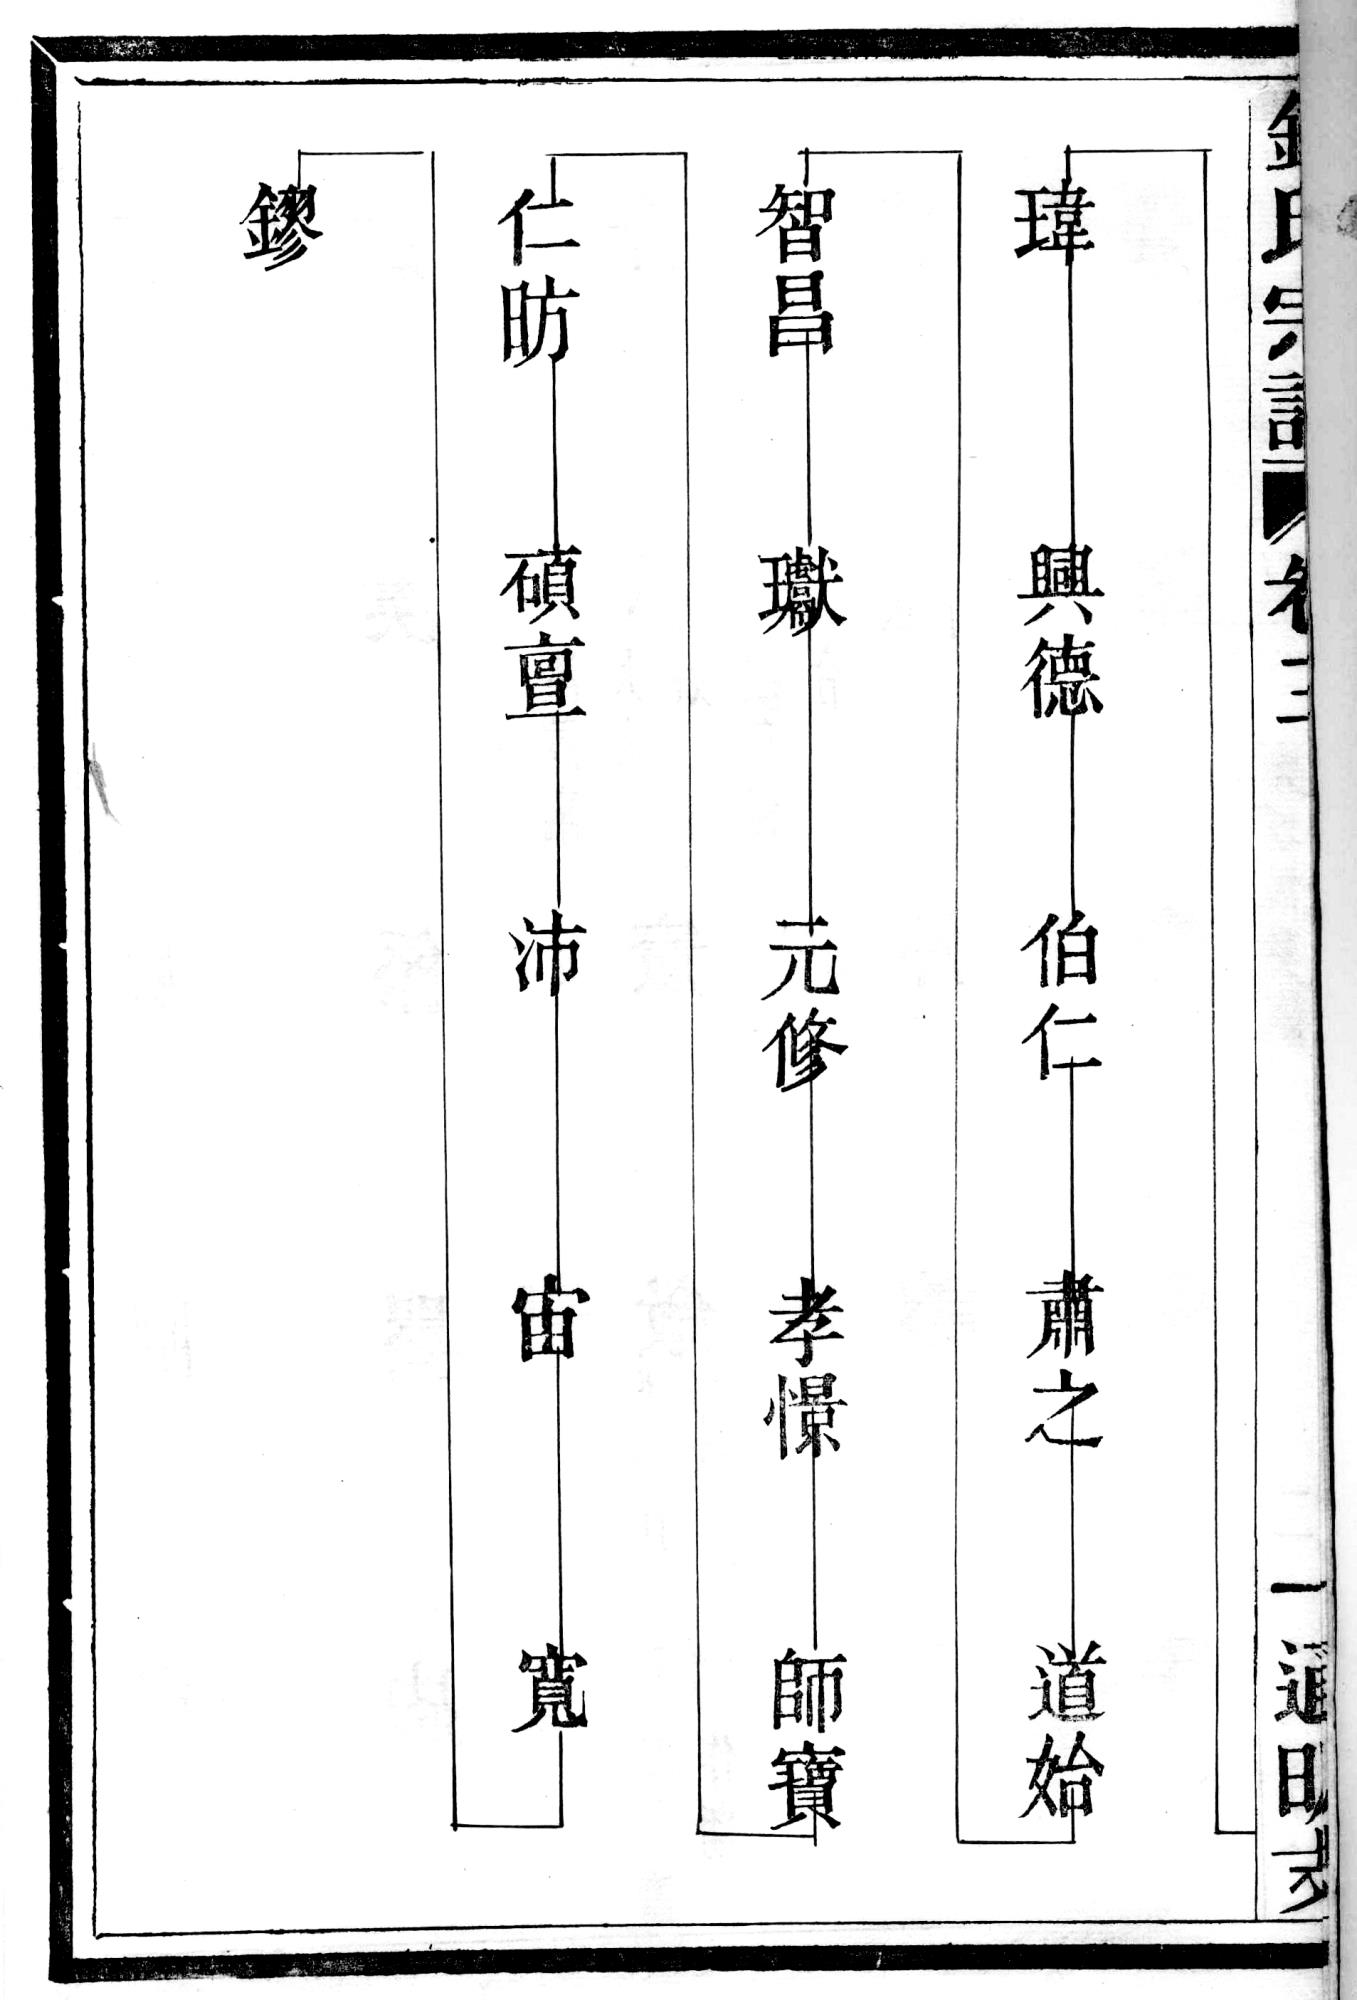 錢氏宗譜 卷三 一
瑋 興德 伯仁 肅之 道始
智昌 瓛 元修 孝憬 師寶
仁昉 碩亶 沛 宙 寬
鏐